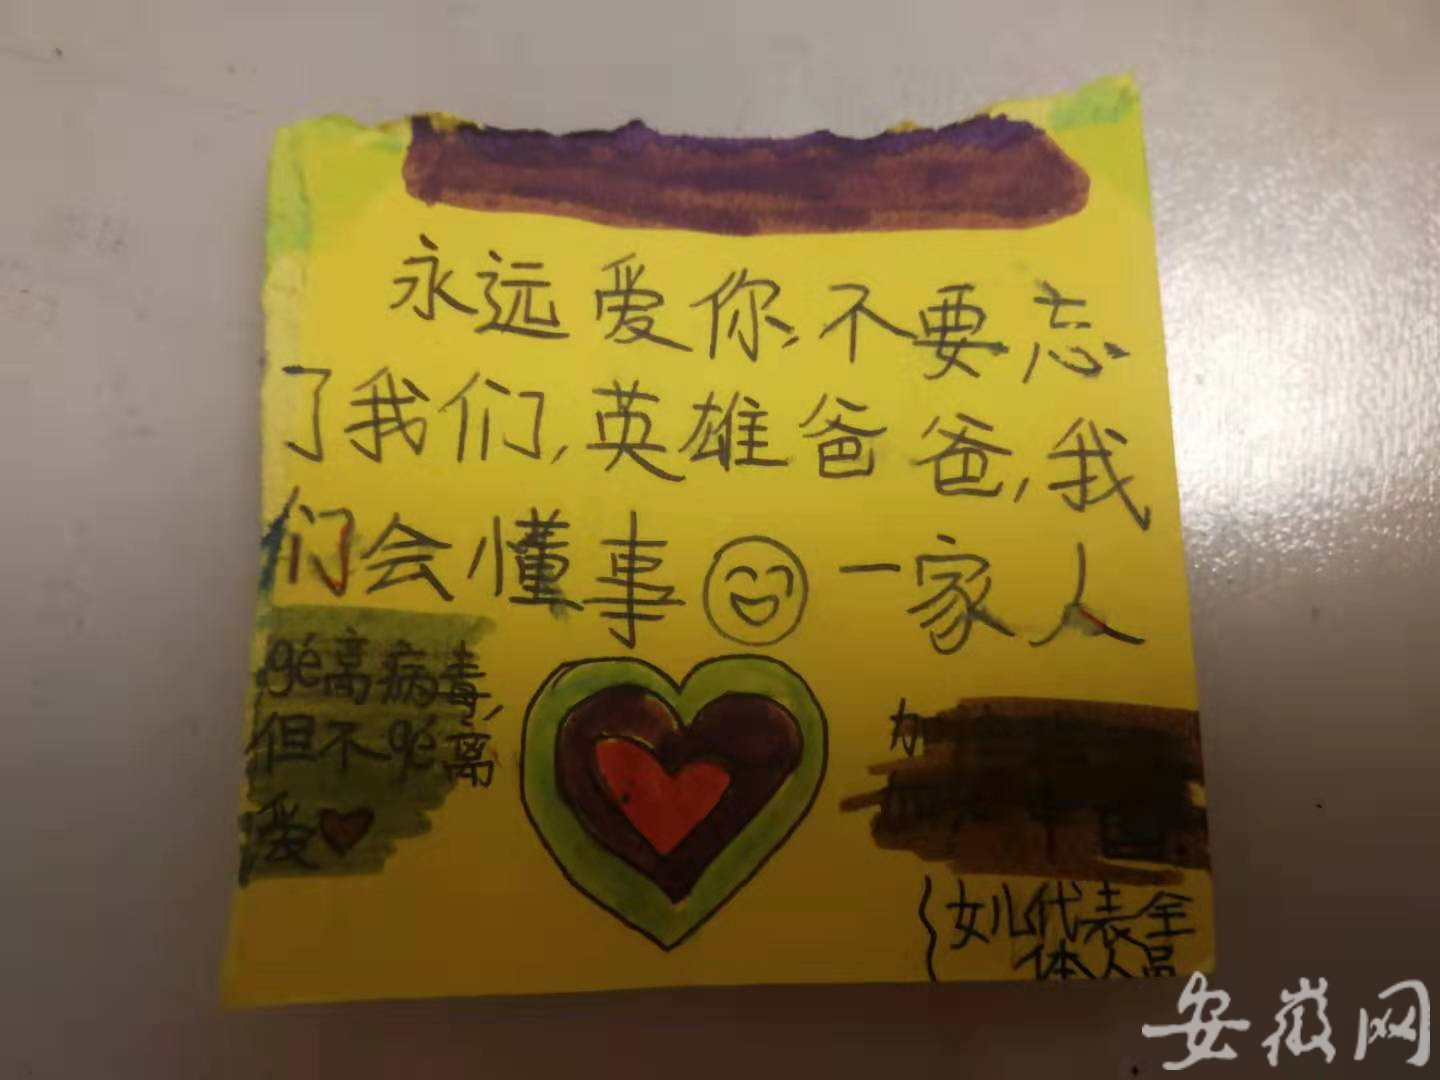 永远爱你,不要忘
了我们,英雄爸爸,我
们会懂事 一家人
gé离病毒,
但不gé离
爱
加
女儿代表全
体人员
安徽网